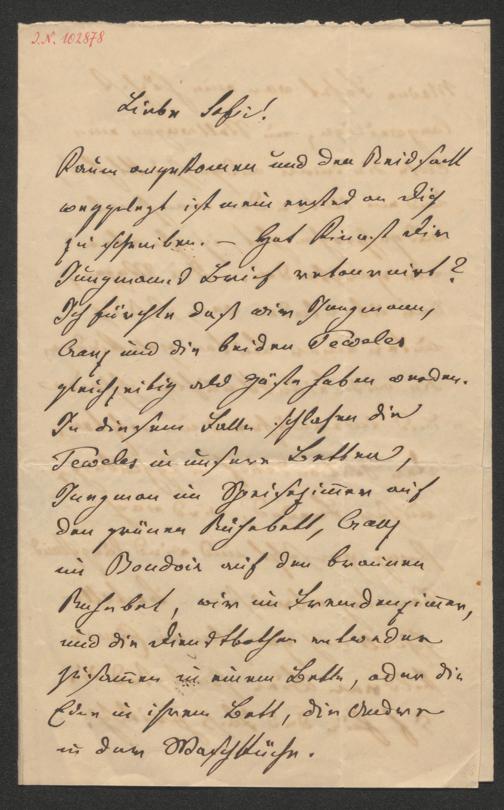 J.N. 102878
Liebe Sofi!
Kaum angekomen und den Reisesack
weggelegt ist mein erstes an Dich
zu schreiben. — Hat Dir
Jungmanns Brief retournirt?
Ich fürchte daß wir Jungmann,
Cranz und die beiden Teweles
gleichzeitig als Gäste haben werden.
In diesem Falle schlafen die
Teweles in unsern Betten,
Jungman im Speisezimer auf
den grünen Ruhebett, Cranz
im Boudoir auf den braunen
Ruhebet, wir im Fremdenzimer,
und die Dienstbothen entweder
zusamen in einem Bette, oder die
Eine in ihrem Bett, die Andere
in der Waschküche.